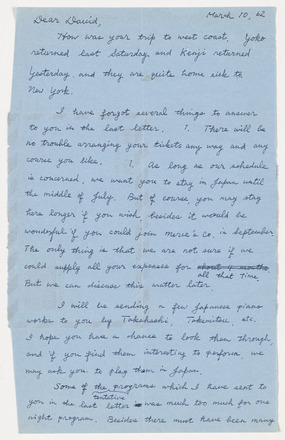 March 10, 62
Dear David,
How was your trip to west coast, Yoko
returned last Saturday, and Kenji returned
yesterday, and they are quite home sick to
New York.
I have forgot several things to answer
to you in the last letter. 1. There will be
no trouble arranging your tickets any way and any
course you like. 2. As long as our schedule
is concerned, we want you to stay in Japan until
the middle of July. But of course you may stay
here longer if you wish, besides it would be
wonderful if you could join Merce's Co, in September.
The only thing is that we are not sure if we
could supply all your expenses for about 4 months
all that time,
But we can discuss this matter later.
I will be sending a few Japanese piano
works to you by Takahashi, Takemitsu, etc.
I hope you have a chance to look them through,
and if you find them interesting to perform, we
may ask you to play them in Japan.
Some of the programs which I have sent to
tentative
you in the last letter was much too much for one
night program. Besides there must have been many